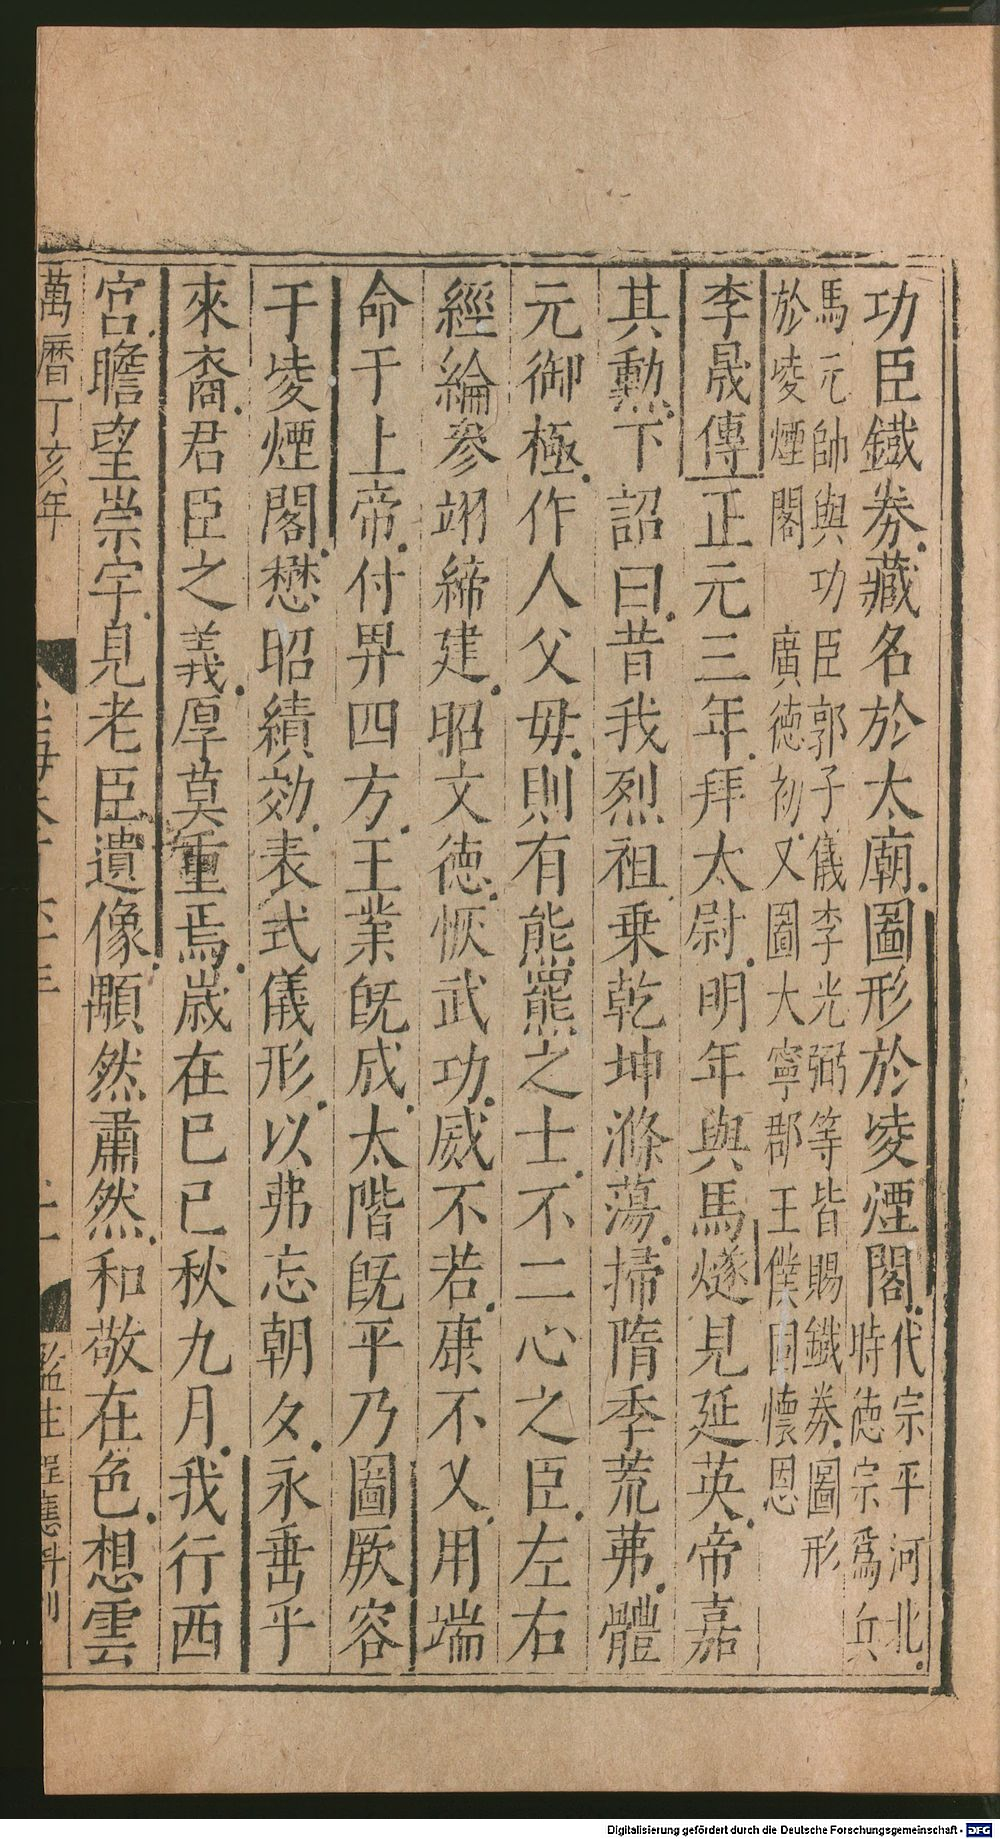 功臣鐵券藏名於太廟圖形於凌煙閣代宗平河北
時徳宗爲兵
馬元帥與功臣郭子儀李光弼等皆賜鐵券圖形
於凌煙閣 廣徳初又圖大寧郡王僕固懷恩
李晟傳正元三年拜太尉明年與馬燧見延英帝嘉
其勲下詔曰昔我烈祖乗乾坤滌蕩掃隋季荒茀體
元御極作人父毋則有熊羆之士不二心之臣左右
經綸參翊締建昭文徳恢武功威不若康不乂用端
命于上帝付畀四方王業旣成太階旣平乃圖厥容
于凌煙閣懋昭績効表式儀形以弗忘朝夕永垂乎
來裔君臣之義厚莫重焉歲在已巳秋九月我行西
宮瞻望崇宇見老臣遺像顒然肅然和敬在色想雲
萬曆丁亥年
監生程應科刊
Digitalisierung gefördert durch die Deutsche Forschungsgemeinschaft - DFG